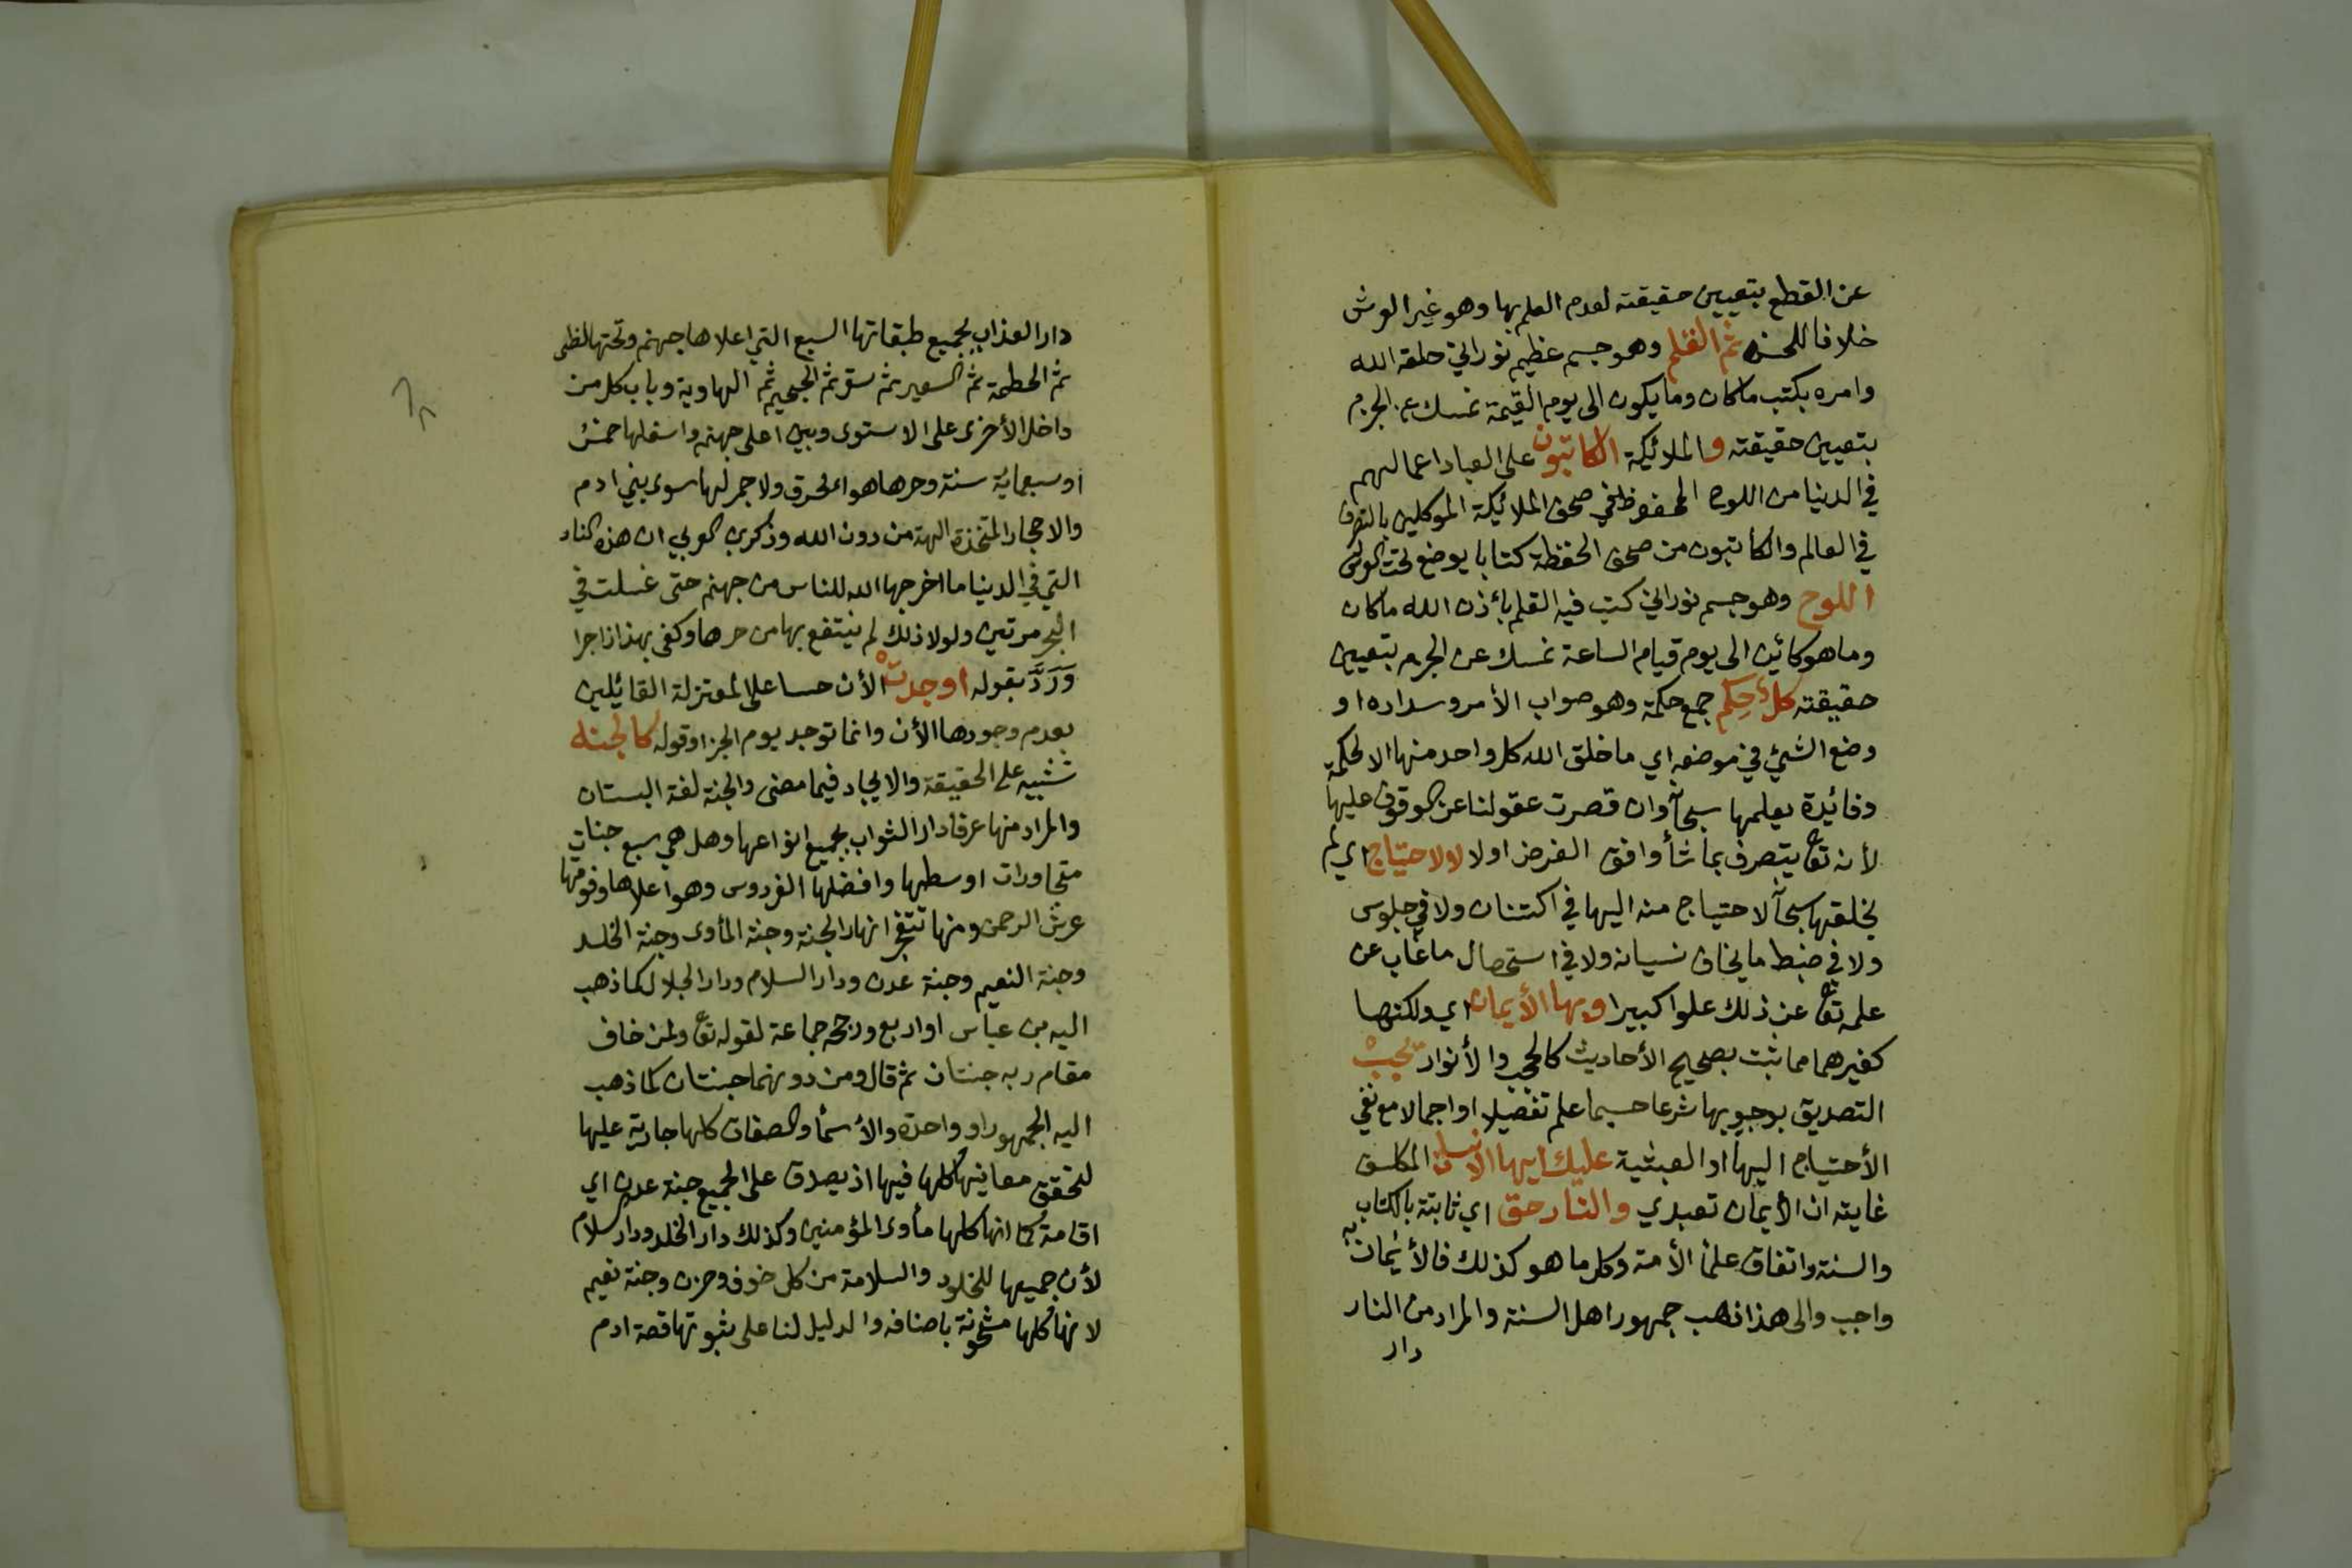 عن القطع بتعيين حقيقته لعدم العلم بها وهو غير العرش
خلافا للحسن ثم القلم وهو جسم عظيم نوراني خلقه الله
وامره بكتب ماكان وما يكون الى يوم القيمة نمسك عن الجرم
بتعيين حقيقته والملائيكة الكاتبون على العباد اعمالهم
في الدنيا من اللوح المحفوظ في صحف الملائيكة الموكلين بالتصرف
في العالم والكاتبون من صحف الحفظة كتابا يوضع تحت العرش
اللوح وهو جسم نوراني كتب فيه القلم بأذن الله ماكان
وما هو كائين الى يوم قيام الساعة نمسك عن الجرم بتعيين
حقيقته كل حِكَم جمع حكمة وهو صواب الأمر وسداده او
وضع الشيئ في موضعه اي ما خلق الله كل واحد منها الا لحكمة
وفائيدة يعلمها سبحانه وان قصرت عقولنا عن الوقوف عليها
لأنه تع يتصرف بما شأ وافق الغرض اولا لا لاحتياج اي لم
يخلقها سبحانه لاحتياج منه اليها في اكتنان ولا في جلوس
ولا في ضبط ما يخاف نسيانه ولا في استحصال ما غاب عن
علمه تع عن ذلك علوا كبيرا وبها الأيمان اي ولكنها
كغيرهما مما ثبت بصحيح الأحاديث كالحجب والأنوار يجب
التصديق بوجوبها شرعا حسبما علم تفضيلا او اجمالا مع نفي
الأحتياج اليها او العبثية عليك ايها الانسان المكلف
غايته ان الأيمان تعبدي والنار حق اي ثابتة بالكتاب
والسنة واتفاق علمأ الأمة وكل ما هو كذلك فالأيمان به
واجب والى هذا ذهب جمهور اهل السنة والمراد من النار
دار
دار العذاب بجميع طبقاتها السبع التي اعلاها جهنم وتحتها لظى
ثم الحطمة ثم السعير ثم سقر ثم الجحيم ثم الهاوية وباب كل من
داخل الأخرى على الاستوى وبين اعلى جهنم واسفلها خمس
او سبعماية سنة وحرها هواء محرق ولا جمر لها سوى بني ادم
والاحجار المتخذة الهة من دون الله وذكر بن العربي ان هذه النار
التي في الدنيا ما اخرجها الله للناس من جهنم حتى غسلت في
البحر مرتين ولولا ذلك لم ينتفع بها من حرها وكفى بهذا زاجرا
وَرَدَّ بقوله اوجدت الأن حسا على المعتزلة القائيلين
بعدم وجودها الأن وانما توجد يوم الجزا وقوله كالجنة
تشبيه على الحقيقة والايجاد فيما مضى والجنة لغة البستان
والمراد منها عرفا دار الثواب بجميع انواعها وهل هي سبع جنات
متجاورات اوسطها وافضلها الفردوس وهو اعلاها وفوقها
عرش الرحمن ومنها تتفجر انهار الجنة وجنة المأوى وجنة الخلد
وجنة النعيم وجنة عدن ودار السلام ودار الجلال كما ذهب
اليه بن عباس او اربع ورجحه جماعة لقوله تع ولمن خاف
مقام ربه جنتان ثم قال ومن دونهما جنتان كما ذهب
اليه الجمهور او واحدة والأسمأ والصفات كلها جارية عليها
لتحقق معانيها كلها فيها اذ يصدق على الجميع جنة عدن اي
اقامة كما انها كلها مأوى المؤمنين وكذلك دار الخلد ودار السلام
لأن جميعها للخلود والسلامة من كل خوف وحزن وجنة نعيم
لانها كلها مشحونة باصنافه والدليل لنا على ثبوتها قصة ادم